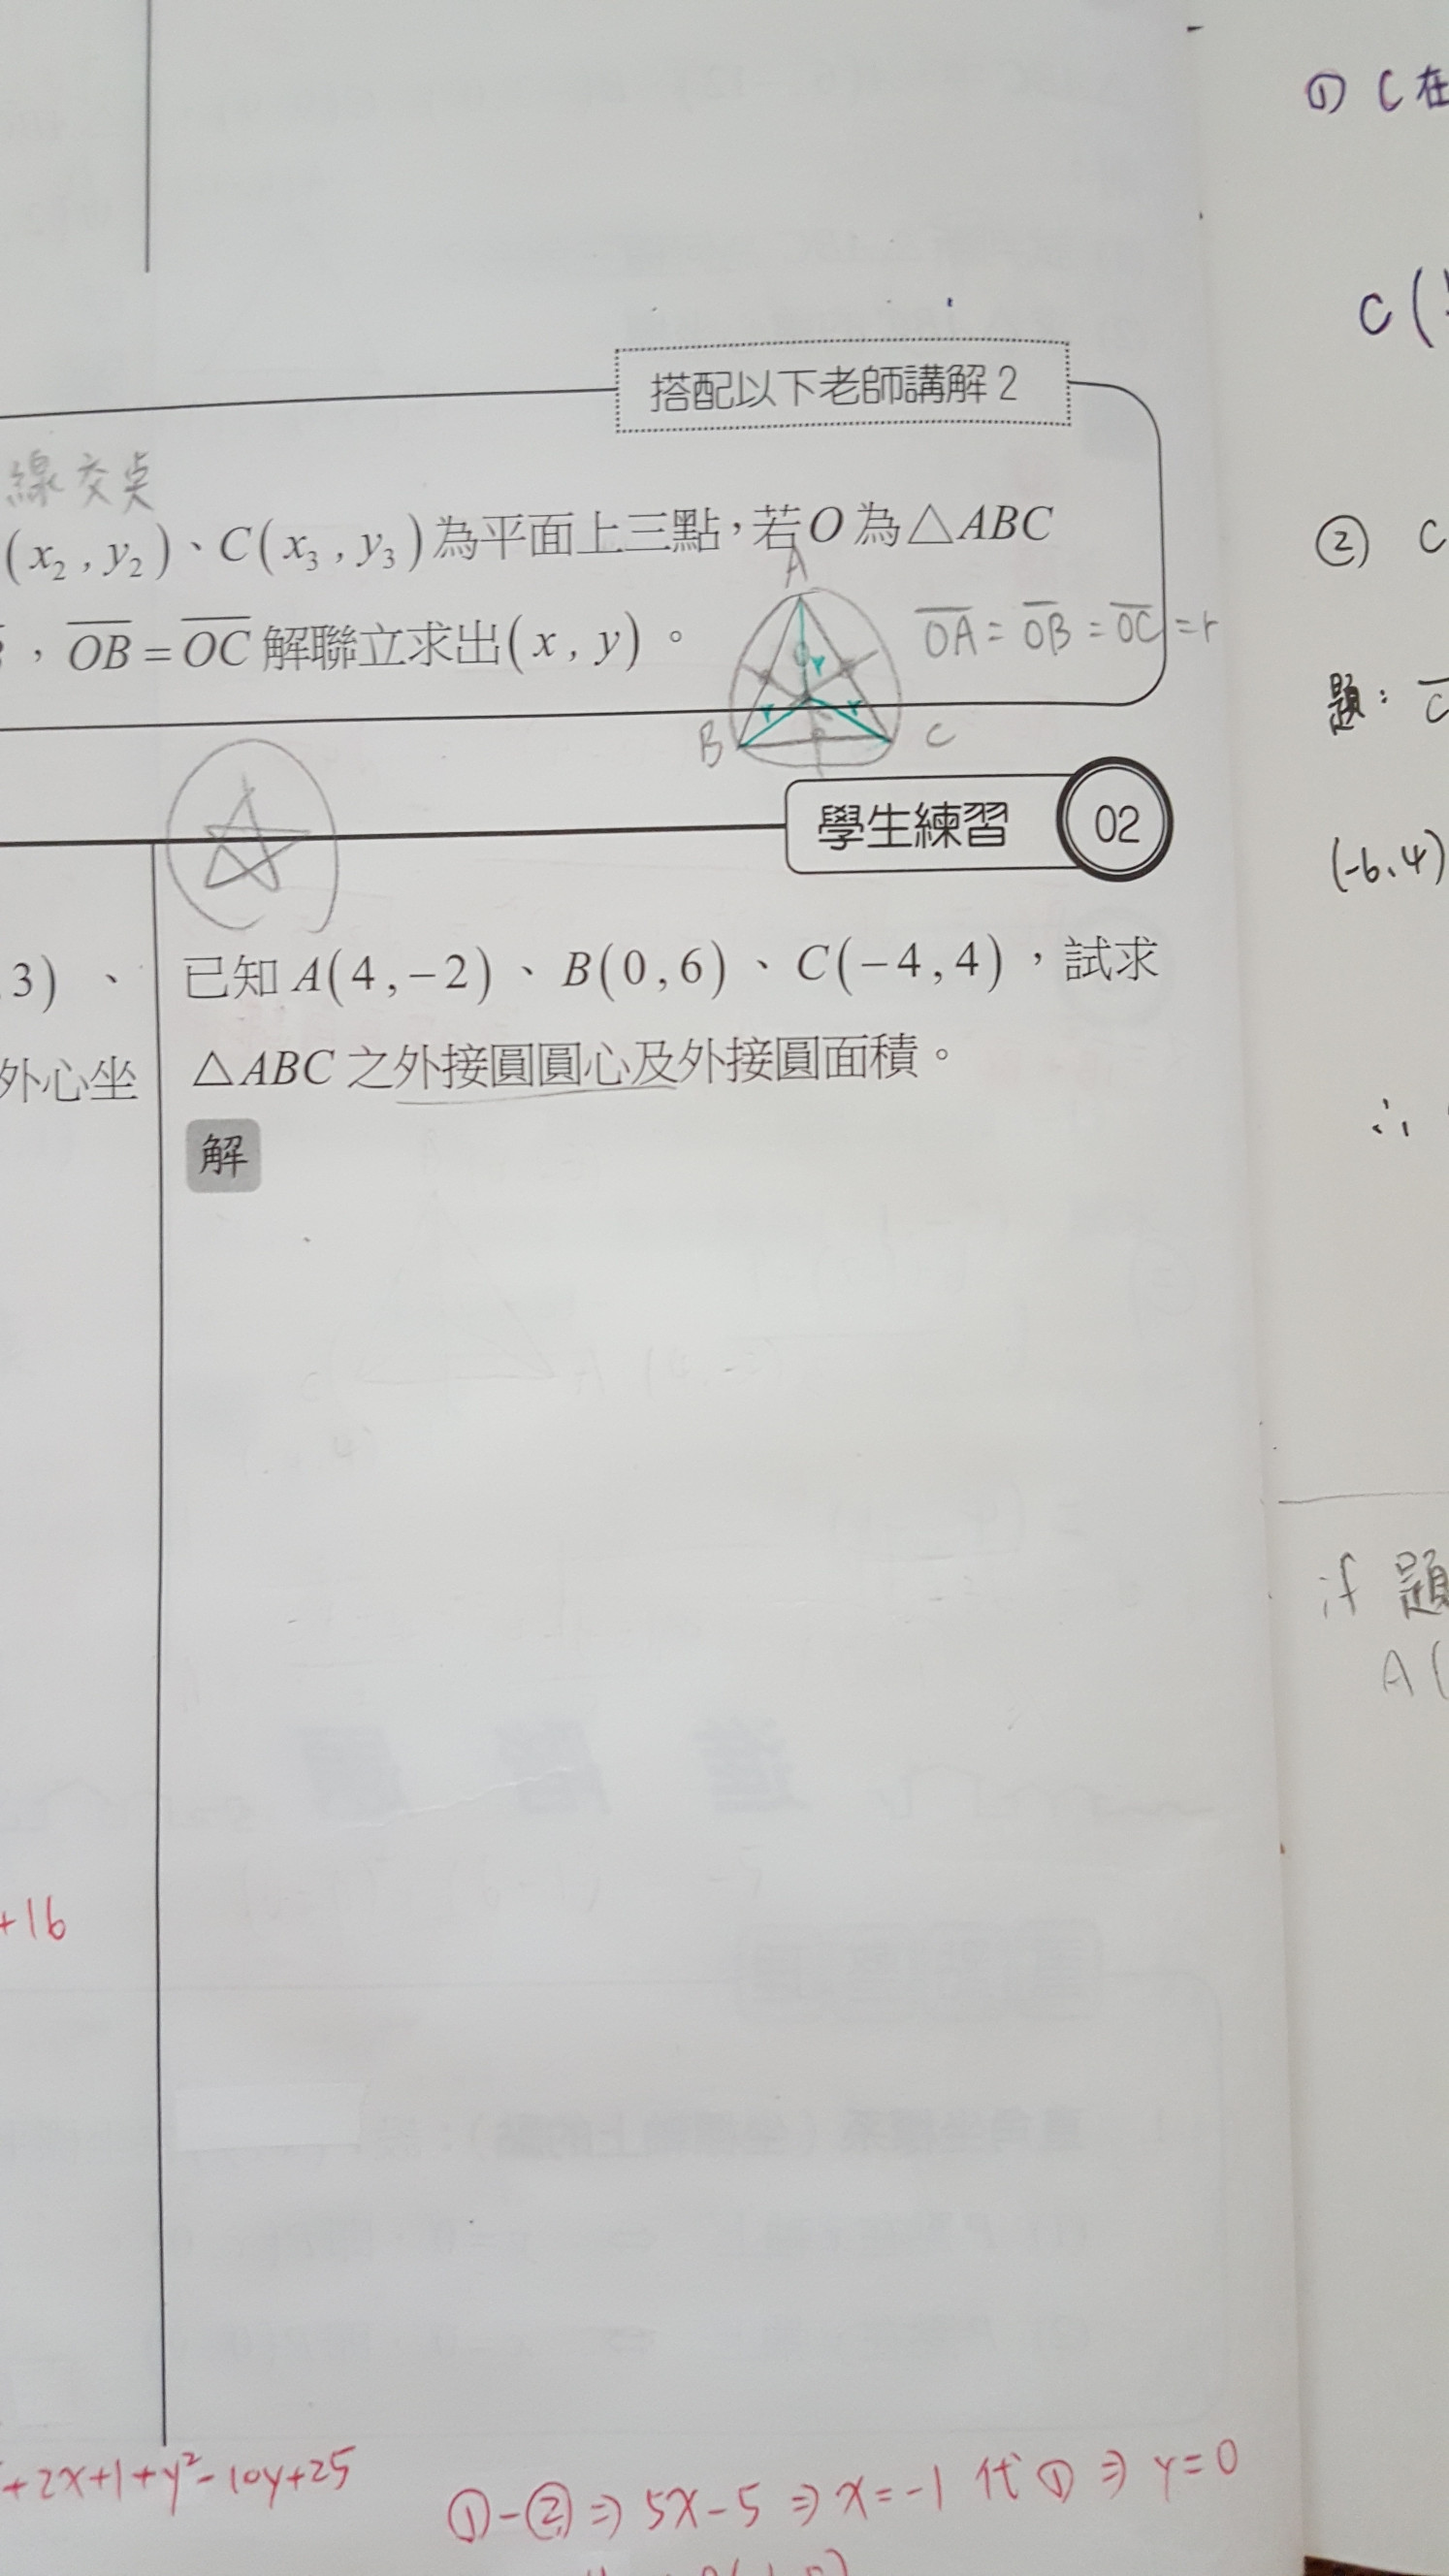 ① C在
C(
搭配以下老師講解 2
線交點
(x₂, y₂)、C(x₃, y₃)為平面上三點,若O為△ABC
A
, \overline{OB} = \overline{OC} 解聯立求出(x, y)。
\overline{OA} = \overline{OB} = \overline{OC} = r
r
r
r
B
C
② C
題:
(-6、4)
學生練習 02
,3)、
已知A(4, -2)、B(0, 6)、C(-4, 4),試求
外心坐
△ABC之外接圓圓心及外接圓面積。
∴
解
if 題
A(
+16
+2x+1+y²-10y+25
①-②⇒5x-5⇒x=-1代①⇒y=0